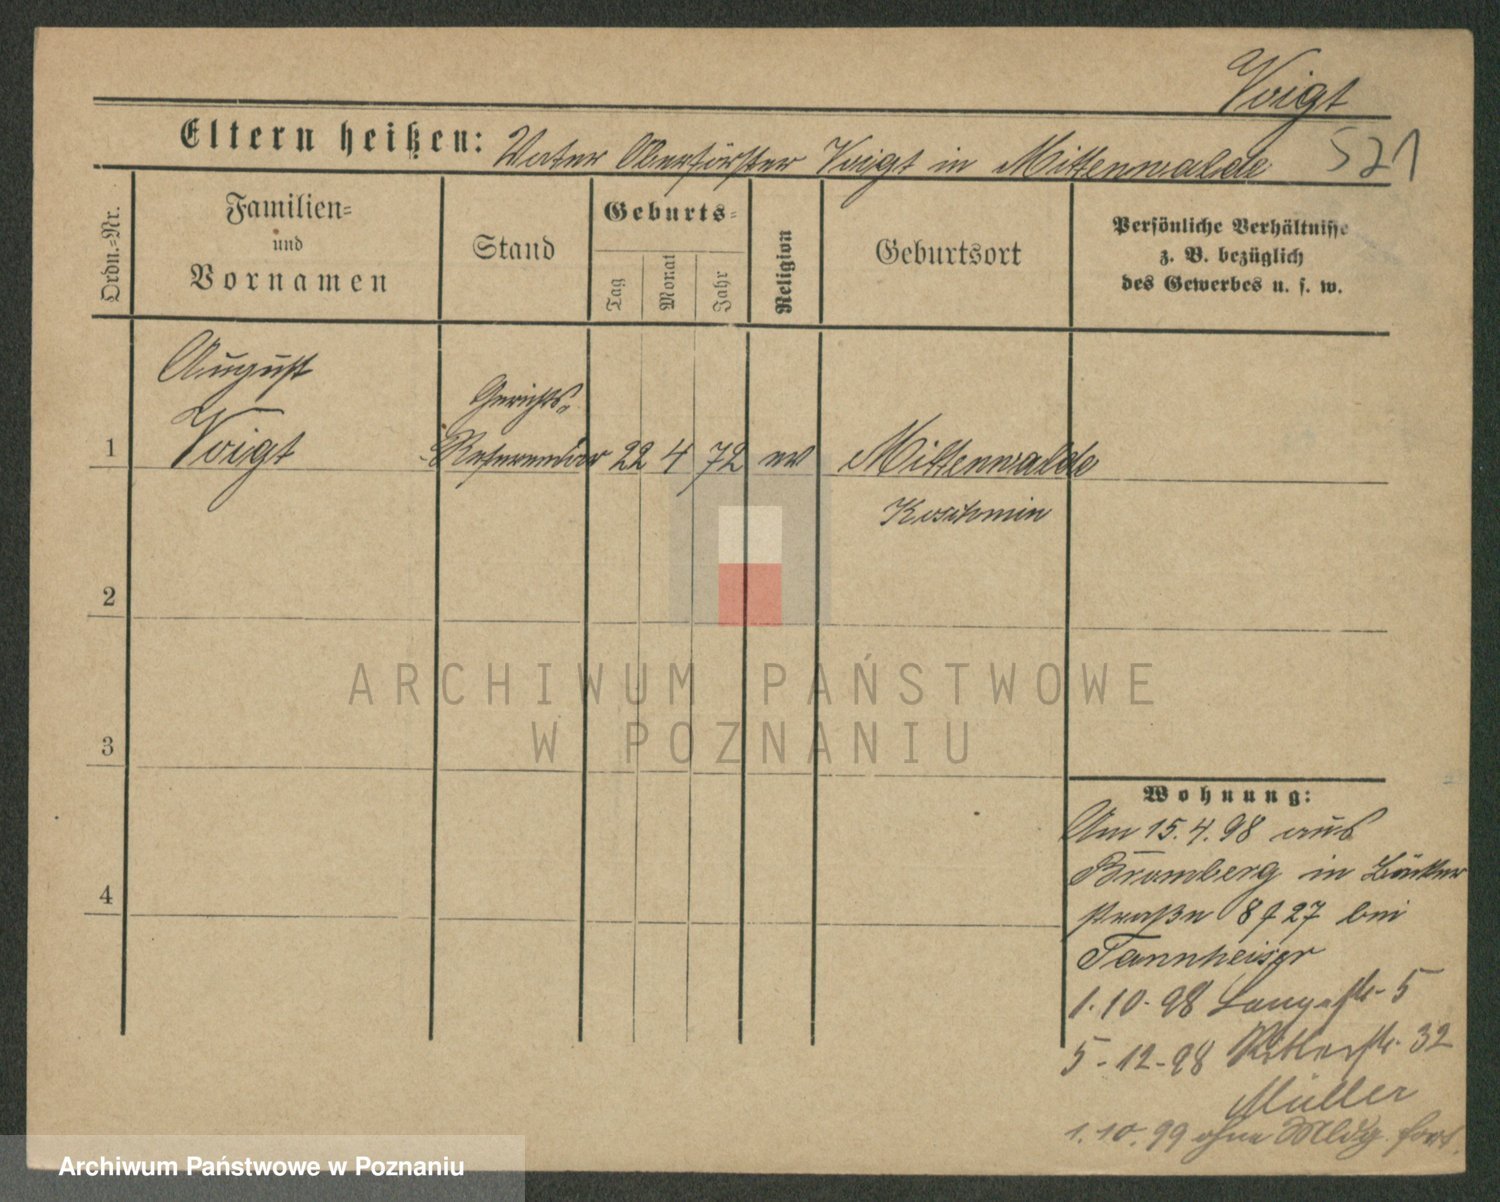 Voigt
521
Eltern heißen: Vater Oberförster Voigt in Mittenwalde
Ordn.=Nr.
Familien=
und
Vornamen
Stand
Geburts=
Tag
Monat
Jahr
Religion
Geburtsort
Persönliche Verhältnisse
z. B. bezüglich
des Gewerbes u. s. w.
August
Gerichts-
1 Voigt Referendar 22 4 72 ev Mittenwalde
Koschmin
2
3
4
ARCHIWUM PAŃSTWOWE
W POZNANIU
Wohnung:
Am 15.4.98 aus
Bromberg in Bäcker
straße 8 27 bei
Tannheiser
1.10.98 Langestr. 5
5-12-98 Ritterstr. 32
Müller
1.10.99 ohne Mldg. fort.
Archiwum Państwowe w Poznaniu